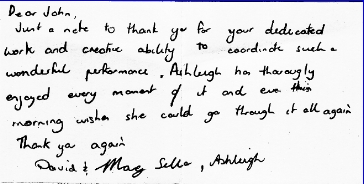 Dear John,
Just a note to thank you for your dedicated
work and creative ability to coordinate such a
wonderful performance. Ashleigh has thoroughly
enjoyed every moment of it and even this
morning wishes she could go through it all again
Thank you again
David &
, Ashleigh